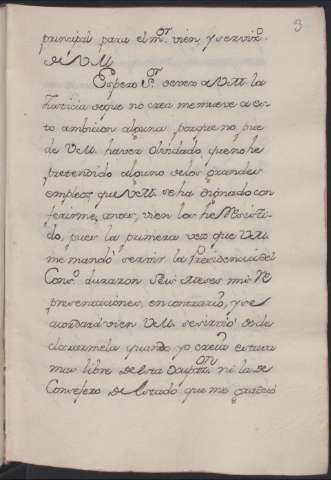 3
principal para el mor. vien, y servizo.
de V.M.
Espero Sr. dever a V.M. la
Justicia de que no crea me mueve a es-
to ambicion alguna porque no pue-
de V.M. haver olvidado, que no he
pretendido alguno de los grandes
empleos que V.M. se ha dignado con-
ferirme, antes, vien los he Resisti-
do, pues la primera vez que V.M.
me mandò servir la Presidencia del
Conso. duraron seis meses mis Re-
presentaciones, en contrario, y se
acordará vien V.M. se sirvió de de-
clararmela quando yo creia estava
mas libre de esta Ocupon. ni la de
Consejero de Estado que me grangeò